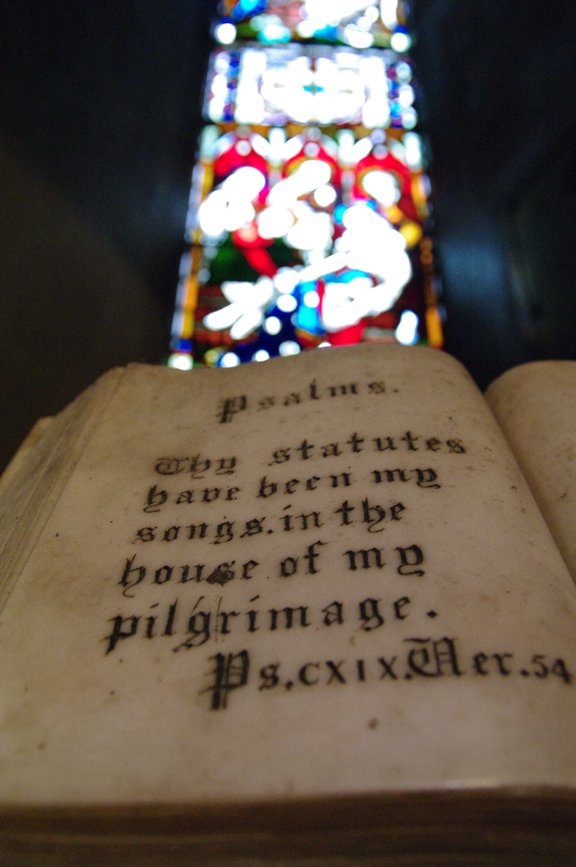 Psalms.
Thy statutes
have been my
songs.in the
house of my
pilgrimage.
Ps.CXIX.Ver.54